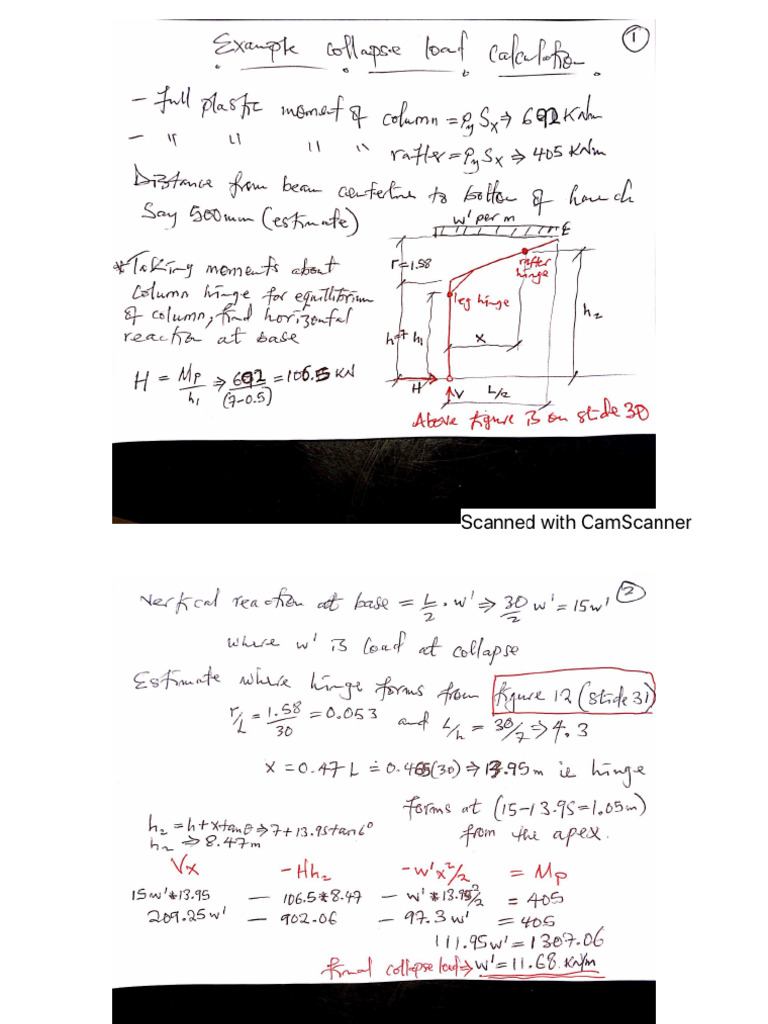 ①
Example collapse load calculation
- Full plastic moment of column = PySx ⇒ 692 KNm
- " " " " rafter = PySx ⇒ 405 KNm
Distance from beam centerline to bottom of haunch
Say 500mm (estimate)
w' per m
℄
*Taking moments about
column hinge for equillibrium
of column, find horizontal
reaction at base
H = Mp/h1 ⇒ 692/(7-0.5) = 106.5 KN
r=1.58
rafter
hinge
leg hinge
h=7
h1
x
h2
H
V
L/2
Above figure is on slide 30
Scanned with CamScanner
②
Vertical reaction at base = L/2 . w' ⇒ 30/2 w' = 15w'
where w' is load at collapse
Estimate where hinge forms from figure 12 (slide 31)
r/L = 1.58/30 = 0.053 and L/h = 30/7 ⇒ 4.3
x = 0.47L ≐ 0.465(30) ⇒ 13.95m ie hinge
forms at (15-13.95=1.05m)
from the apex.
h2 = h+xtanθ ⇒ 7+13.95tan6°
h2 ⇒ 8.47m
Vx - Hh2 - w'x²/2 = Mp
15w'*13.95 - 106.5*8.47 - w'*13.95²/2 = 405
209.25w' - 902.06 - 97.3w' = 405
111.95w' = 1307.06
final collapse load ⇒ w' = 11.68 KN/m